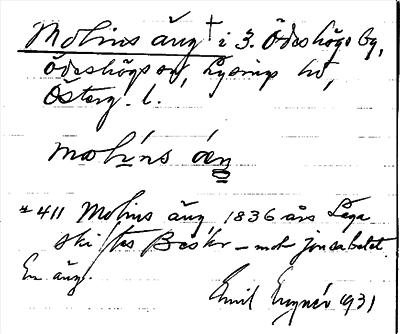 Molins äng † i 3. Ödeshögs by,
Ödeshögs sn, Lysings hd,
Österg. l.
molins äŋ
#411 Molins äng 1836 års Laga
skiftes Beskr – mot jordabalet.
En äng.
Emil 1931